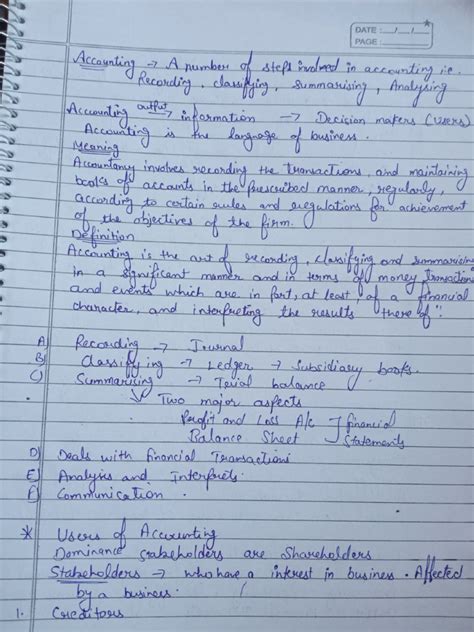 DATE : __/__/__
PAGE :
Accounting → A number of steps involved in accounting i.e.
Recording, classifying, summarising, Analysing
Accounting output→ information → Decision makers (users)
Accounting is the language of business.
Meaning
Accountancy involves recording the transactions, and maintaining
books of accounts in the prescribed manner, regularly,
according to certain rules and regulations for achievement
of the objectives of the firm.
Definition
Accounting is the art of recording, classifying and summarising
in a significant manner and in terms of money, transactions
and events which are in part, at least of a financial
character, and interpreting the results there of".
A) Recording → Journal
B) Classifying → Ledger → Subsidiary books.
C) Summarising → Trial balance
↳ Two major aspects
Profit and Loss A/c ] financial
Balance Sheet ] statements
D) Deals with financial Transactions
E) Analysis and Interprets.
F) Communication.
* Users of Accounting
Dominance stakeholders are Shareholders
Stakeholders → who have a interest in business. Affected
by a business.
1. Creditors